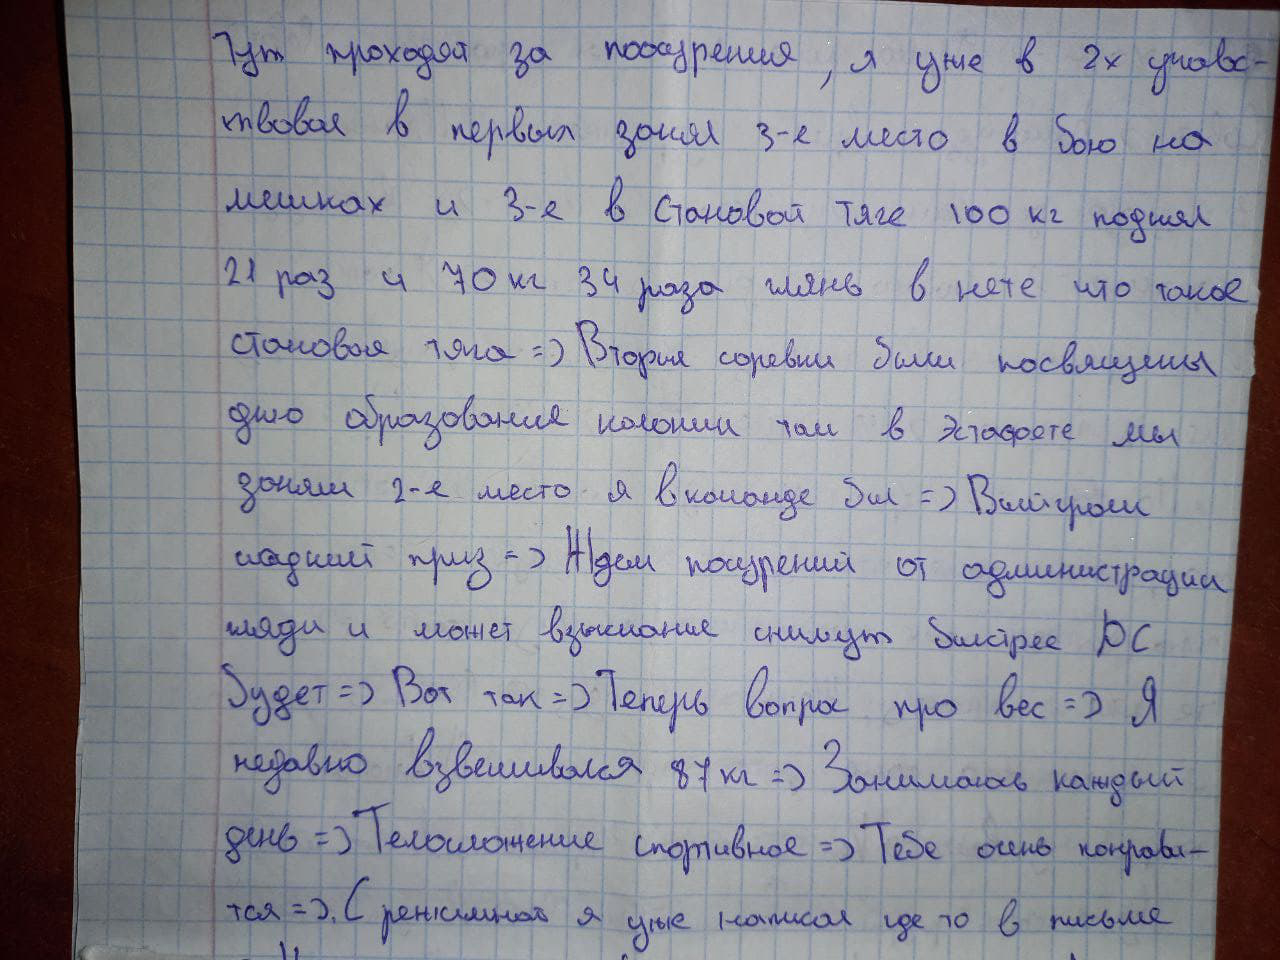 Тут проходят за поощрения, я уже в 2х учавс-
твовал в первых занял 3-е место в бою на
мешках и 3-е в становой тяге 100 кг поднял
21 раз и 70 кг 34 раза глянь в нете что такое
становая тяга =) Вторые соревы были посвящены
дню образования колонии там в эстафете мы
заняли 2-е место я в команде был =) Выиграли
сладкий приз =) Ждем поощрений от администрации
гляди и может взыскание снимут быстрее ДС
будет =) Вот так =) Теперь вопрос про вес =) Я
недавно взвешивался 87 кг =) Занимаюсь каждый
день =) Телосложение спортивное =) Тебе очень понрави-
тся =). С режимной я уже написал где то в письме